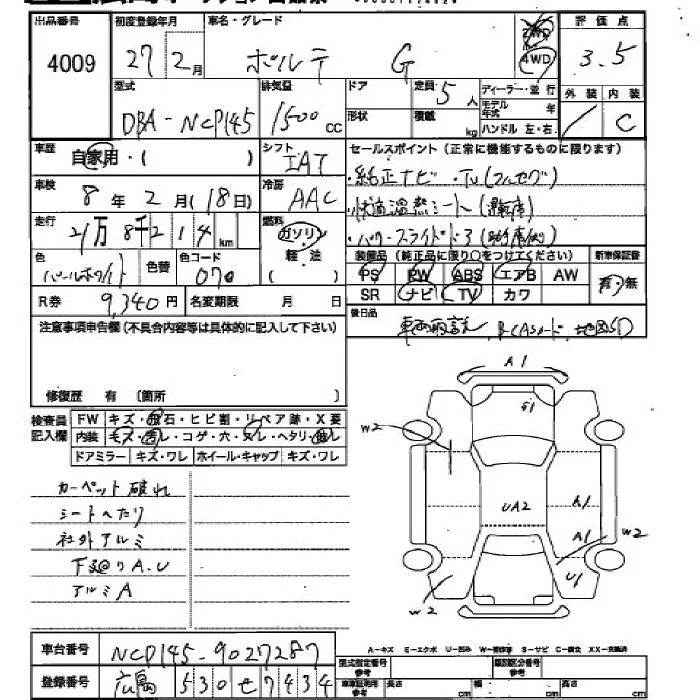 出品番号 初度登録年月 車名・グレード 評価点
4009 27 2月 ポルテ G 2WD 4WD 3.5
型式 排気量 ドア 定員 5人 ディーラー・並行 外装 内装
DBA-NCP145 1500 CC 形状 積載 kg モデル年式 年 C
ハンドル 左・右
車歴 自家用・( ) シフト IAT セールスポイント(正常に機能するものに限ります)
車検 8年 2月(18日) 冷房 AAC ・純正ナビ・TV(フルセグ)
走行 21万8千214km 燃料 ガソリン ・快適温熱シート(運転席)
軽・油 ( ) ・パワースライドドア(助手席側)
色 パールホワイト 色替 色コード 070 装備品(純正品に限り○をつけてください) 新車保証書
PS PW ABS エアB AW 有・無
SR ナビ TV カワ
R券 9,340円 名変期限 月 日
後日品 車両取説, B-CASカード, 地図SD
注意事項申告欄(不具合内容等は具体的に記入して下さい)
修復歴 有 〔箇所 〕
検査員記入欄 FW キズ・飛石・ヒビ割・リペア跡・X要
内装 キズ・汚レ・コゲ・穴・ヌレ・ヘタリ・
ドアミラー キズ・ワレ ホイール・キャップ キズ・ワレ
カーペット破れ
シートへたり
社外アルミ
下廻りA.U
アルミA
A1
S1
W2
UA2
A1
A1
W2
U1
W2
A-キズ E-エクボ U-凹み W-補修跡 S-サビ C-腐食 XX-交換済
車台番号 NCP145-9027287
登録番号 広島 530 せ 7434
型式指定番号 参考 類別区分番号 参考
参考 長さ cm 幅 cm 高さ cm